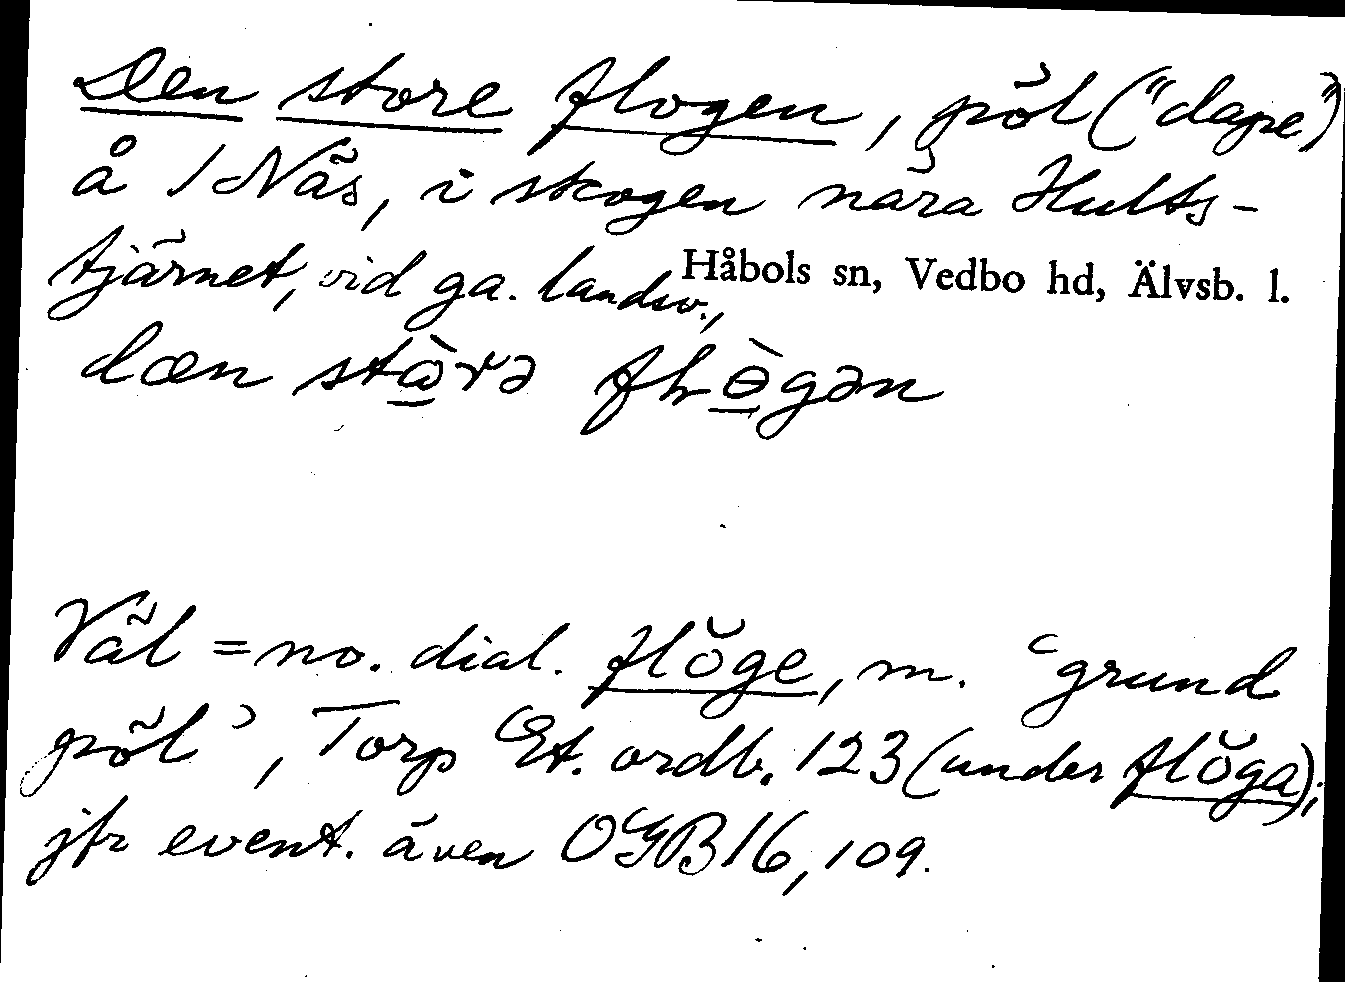 Den store flogen, pöl ("dape")
å 1 Näs, i skogen nära Hults-
tjärnet, vid ga. landsv.,
Håbols sn, Vedbo hd, Älvsb. l.
dæn
Väl = no. dial. flŏge, m. ‘grund
pöl’, Torp Et. ordb. 123 (under flŏga);
jfr event. även OGB 16, 109.